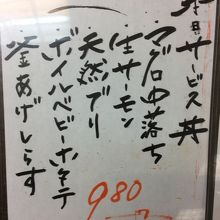 本日サービス丼
マグロ中落ち
生サーモン
天然ブリ
ボイルベビーホタテ
釜あげしらす
980